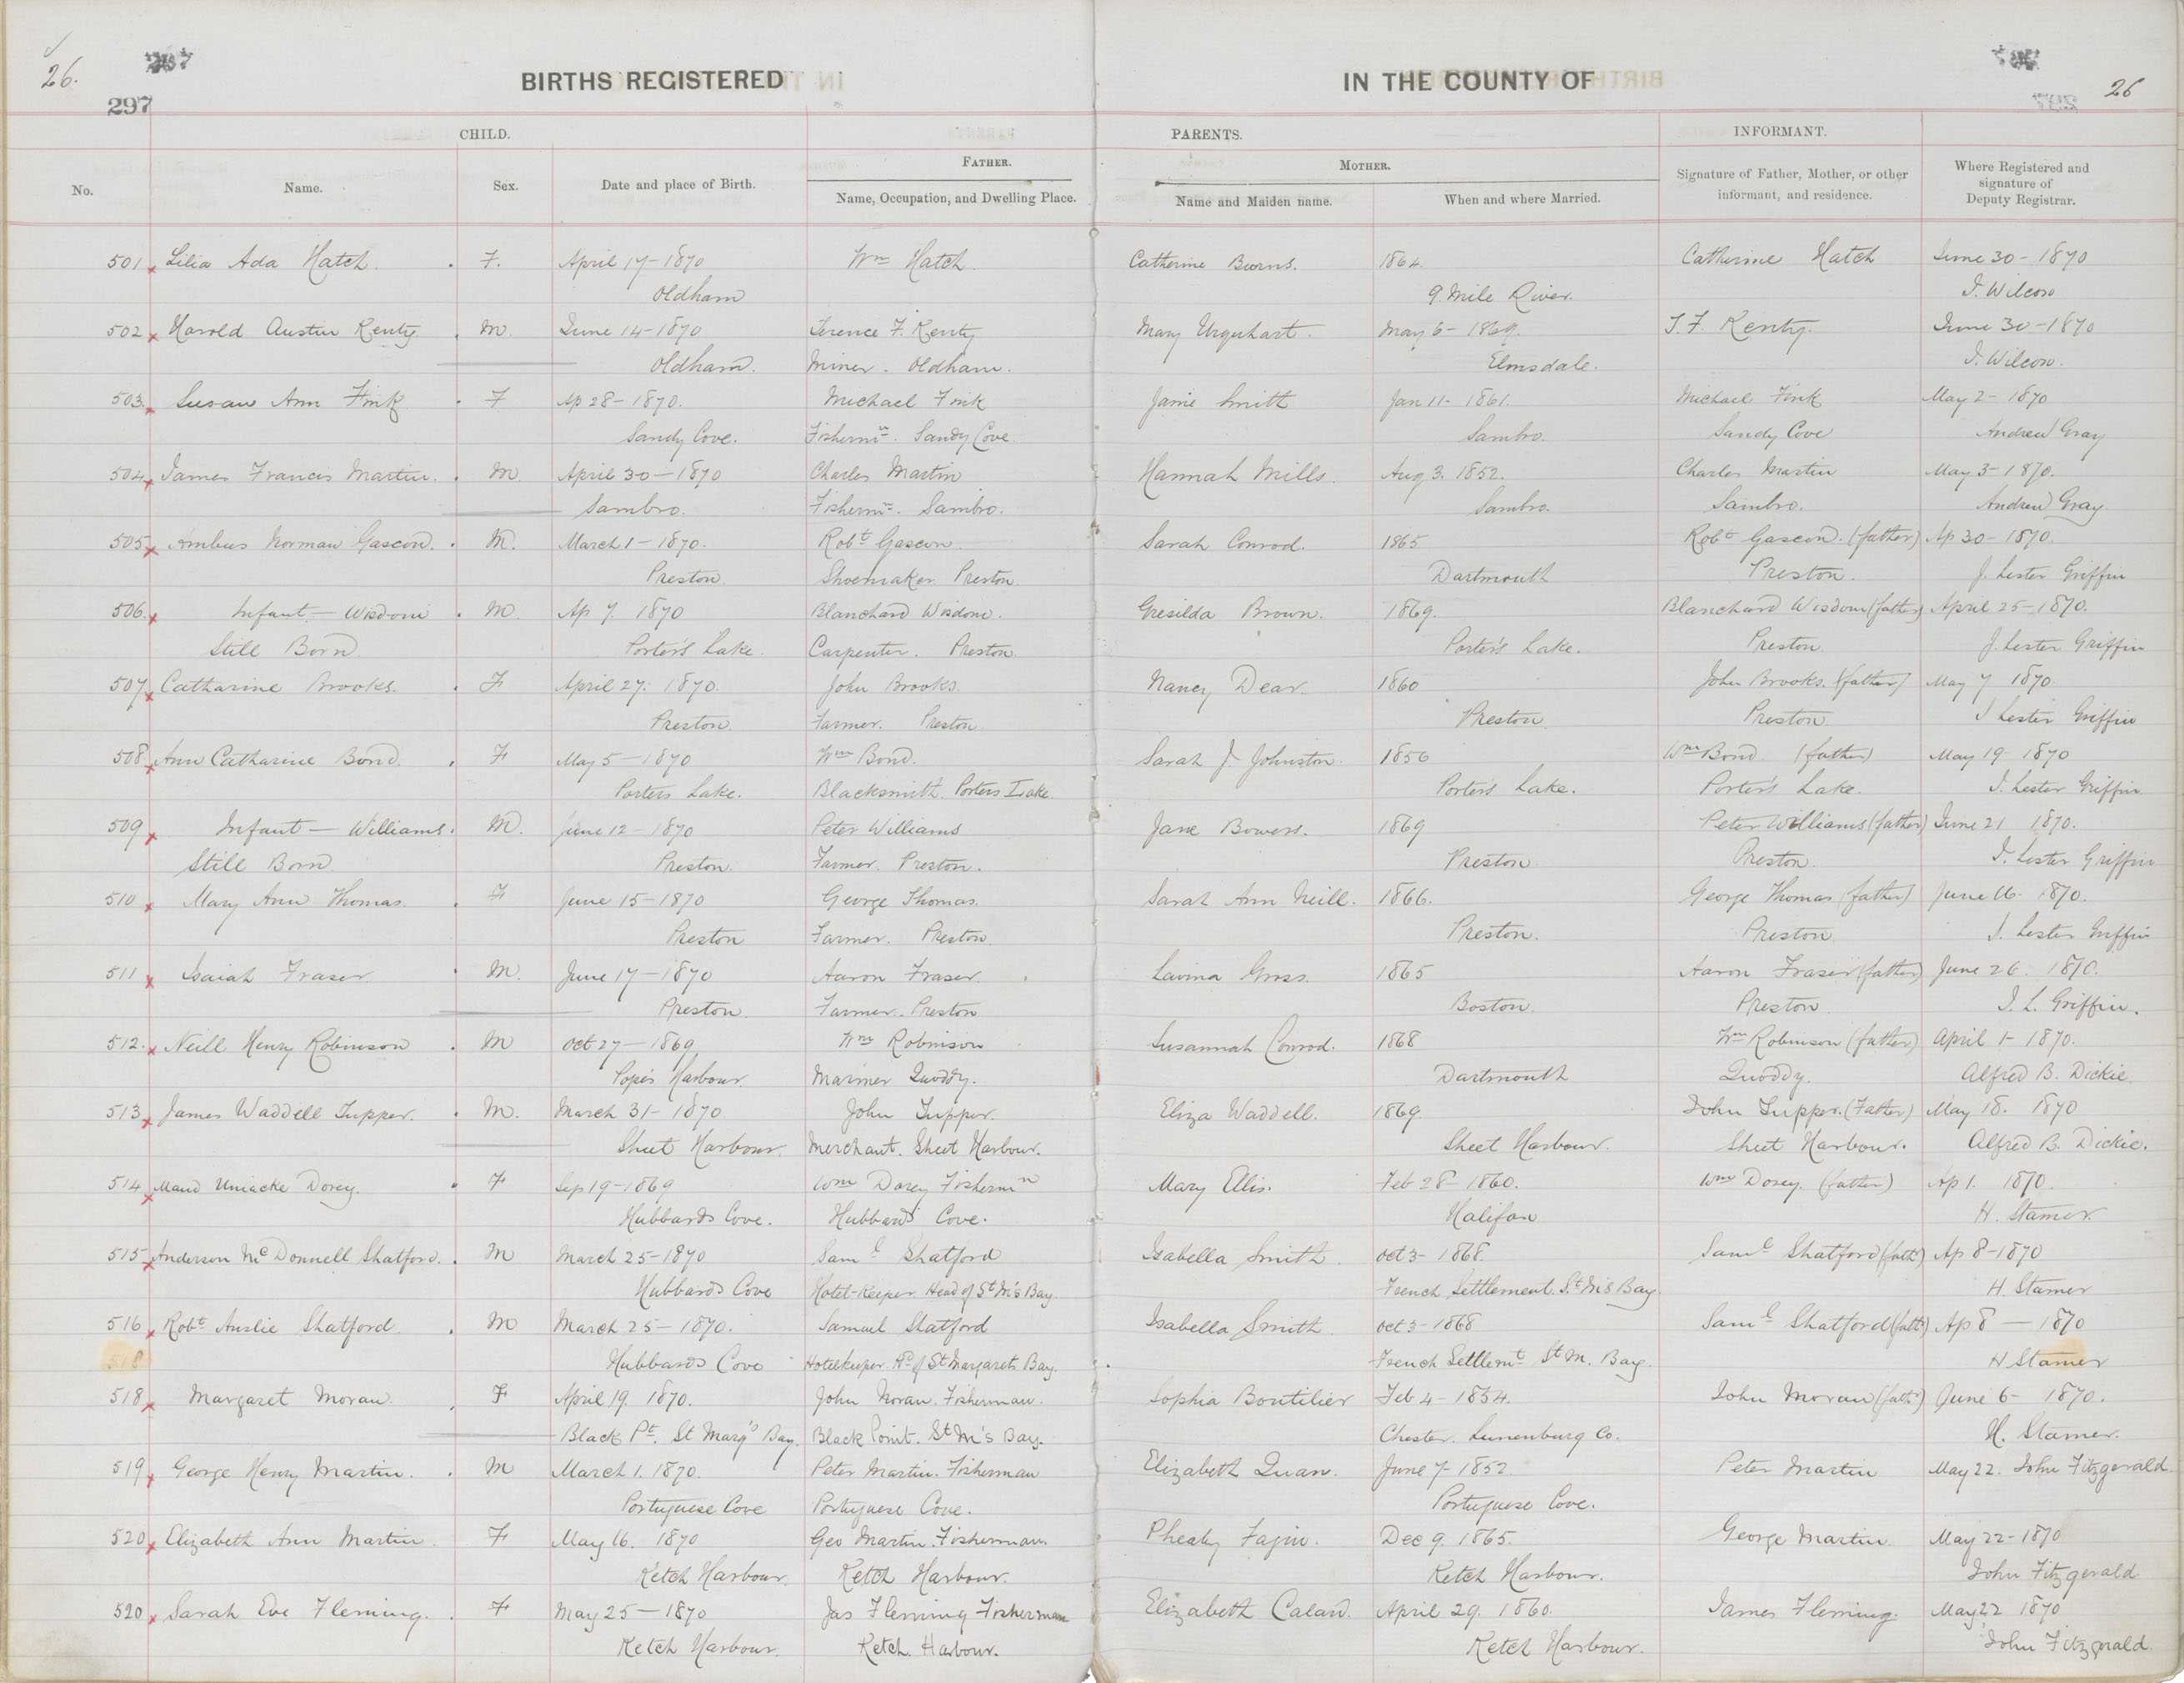 26. 297 26
297
BIRTHS REGISTERED IN THE COUNTY OF
CHILD. PARENTS. INFORMANT.
FATHER. MOTHER.
No. Name. Sex. Date and place of Birth. Name, Occupation, and Dwelling Place. Name and Maiden name. When and where Married. Signature of Father, Mother, or other informant, and residence. Where Registered and signature of Deputy Registrar.
501 Lilia Ada Hatch. F. April 17-1870 Wm Hatch. Catherine Burns. 1864. Catherine Hatch June 30-1870
Oldham 9 Mile River. J. Wilcox
502 Harold Austin Kenty. M. June 14-1870 Terence F. Kenty Mary Urquhart. May 6-1869. T. F. Kenty. June 30-1870
Oldham. Miner. Oldham. Elmsdale. J. Wilcox.
503. Susan Ann Fink F Ap 28-1870. Michael Fink Janie Smith Jan 11-1861. Michael Fink May 2-1870
Sandy Cove. Fishermn. Sandy Cove. Sambro. Sandy Cove Andrew Gray
504 James Francis Martin. M. April 30-1870 Charles Martin Hannah Mills. Aug 3. 1852. Charles Martin May 3-1870.
Sambro. Fishermn. Sambro. Sambro. Sambro. Andrew Gray.
505 Ambus Norman Gascon. M. March 1-1870. Robt Gascon. Sarah Conrod. 1865 Robt Gascon. (father) Ap 30-1870.
Preston. Shoemaker. Preston. Dartmouth Preston. J. Lester Griffin
506. Infant - Wisdom M. Ap 7. 1870 Blanchard Wisdom. Gresilda Brown. 1869. Blanchard Wisdom (father) April 25-1870.
Still Born. Porter's Lake. Carpenter. Preston. Porter's Lake. Preston. J. Lester Griffin
507 Catharine Brooks. F April 27. 1870. John Brooks. Nancy Dear. 1860 John Brooks. (father) May 7 1870
Preston. Farmer. Preston. Preston. Preston. J Lester Griffin
508 Ann Catharine Bond. F May 5-1870 Wm Bond. Sarah J Johnston. 1856 Wm Bond. (father) May 19-1870
Porters Lake. Blacksmith. Porters Lake. Porter's Lake. Porter's Lake. J. Lester Griffin.
509 Infant - Williams. M. June 12-1870 Peter Williams Jane Bowers. 1869 Peter Williams (father) June 21 1870.
Still Born. Preston. Farmer. Preston. Preston. Preston. J. Lester Griffin
510 Mary Ann Thomas. F June 15-1870 George Thomas. Sarah Ann Neill. 1866. George Thomas (father) June 16. 1870.
Preston Farmer. Preston. Preston. Preston. J. Lester Griffin
511 Isaiah Fraser. M. June 17-1870 Aaron Fraser. Lavina Gross. 1865 Aaron Fraser (father) June 26. 1870.
Preston. Farmer. Preston Boston. Preston. J. L. Griffin.
512. Neill Henry Robinson M Oct 27-1869 Wm Robinson Susannah Conrod. 1868 Wm Robinson (father) April 1-1870.
Pope's Harbour. Mariner Quoddy. Dartmouth Quoddy. Alfred B. Dickie.
513 James Waddell Tupper. M. March 31-1870. John Tupper. Eliza Waddell. 1869. John Tupper. (Father) May 18. 1870
Sheet Harbour. Merchant. Sheet Harbour. Sheet Harbour. Sheet Harbour. Alfred B. Dickie.
514 Maud Uniacke Dorey. F Sep 19-1869 Wm Dorey Fishermn Mary Ellis. Feb 28-1860. Wm Dorey. (father) Ap 1. 1870.
Hubbards Cove. Hubbards Cove. Halifax H. Stamer.
515 Anderson McDonnell Shatford. M March 25-1870 Saml Shatford Isabella Smith. Oct 3-1868. Saml Shatford (fathr) Ap 8-1870
Hubbards Cove Hotel-Keeper. Head of St M's Bay. French Settlement. St M's Bay. H. Stamer
516 Robt Auslie Shatford. M March 25-1870. Samuel Shatford Isabella Smith. Oct 3-1868 Saml Shatford (fathr) Ap 8-1870
518 Hubbards Cove Hotelkeeper. Hd of St Margarets Bay. French Settlemt St M. Bay. H Stamer
518 Margaret Moran. F April 19. 1870. John Moran. Fisherman. Sophia Boutilier Feb 4-1854. John Moran (fathr) June 6-1870.
Black Pt. St Marg's Bay. Black Point. St M's Bay. Chester. Lunenburg Co. H. Stamer.
519 George Henry Martin. M March 1. 1870. Peter Martin. Fisherman Elizabeth Quan. June 7-1852. Peter Martin May 22. John Fitzgerald.
Portuguese Cove Portuguese Cove. Portuguese Cove.
520 Elizabeth Ann Martin. F May 16. 1870 Geo Martin. Fisherman. Pheaby Fajin. Dec 9. 1865. George Martin. May 22-1870
Ketch Harbour. Ketch Harbour. Ketch Harbour. John Fitzgerald
520 Sarah Eve Fleming. F May 25-1870 Jas Fleming Fisherman Elizabeth Calaw. April 29. 1860. James Fleming. May 22 1870
Ketch Harbour. Ketch. Harbour. Ketch Harbour. John Fitzgerald.